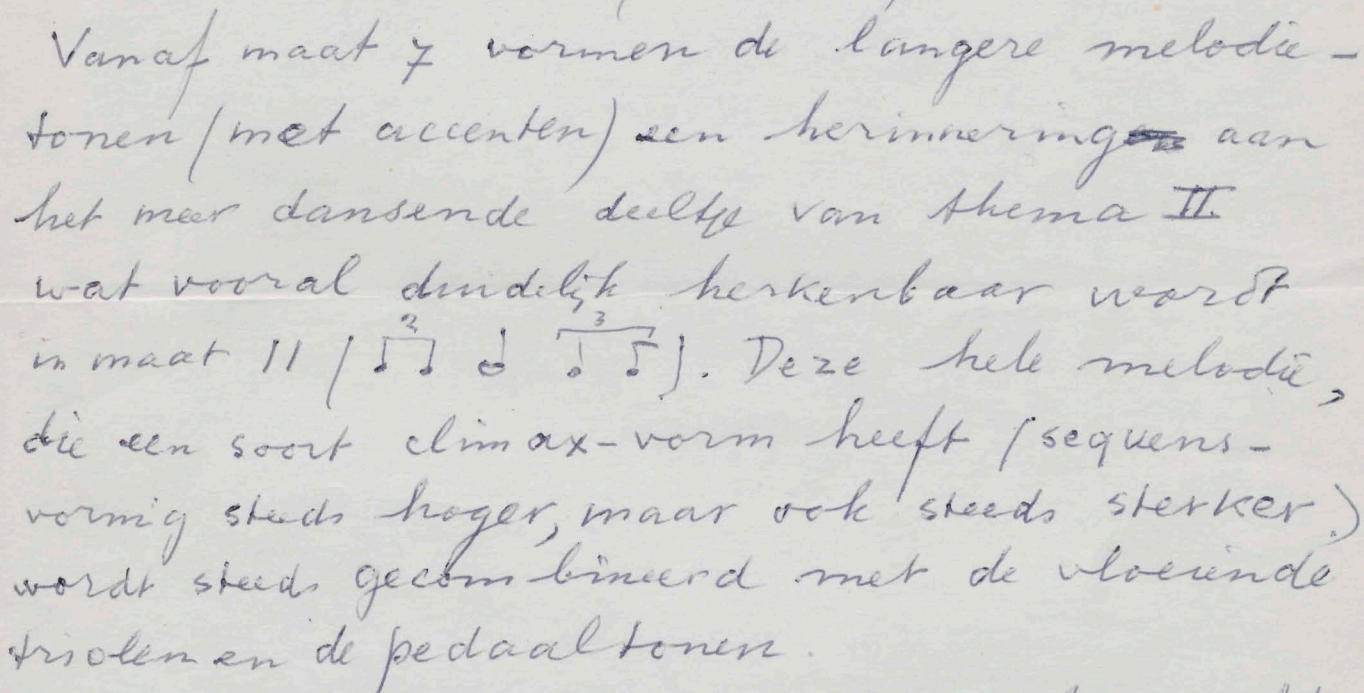 Vanaf maat 7 vormen de langere melodie-
tonen (met accenten) een herinnering aan
het meer dansende deeltje van thema II
wat vooral duidelijk herkenbaar wordt
in maat 11 ( 2 ♫ 𝅗𝅥 3 ♩ ♪ ). Deze hele melodie,
die een soort climax-vorm heeft (sequens-
vormig steeds hoger, maar ook steeds sterker)
wordt steeds gecombineerd met de vloeiende
triolen en de pedaaltonen.